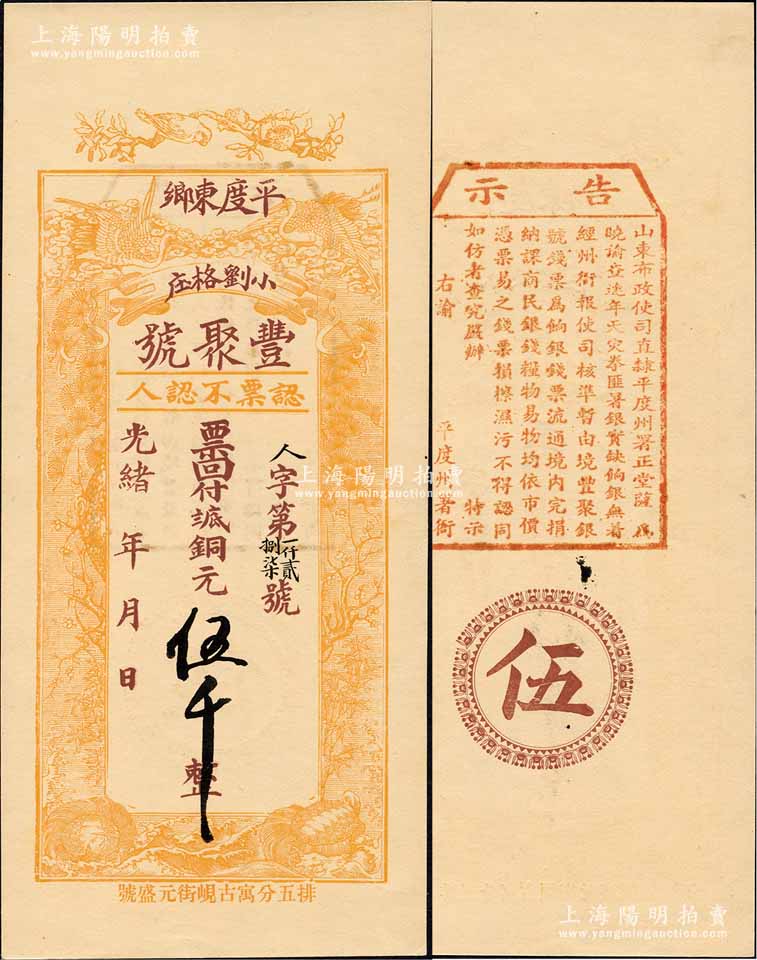 上海陽明拍賣
www.yangmingauction.com
平度東鄉
小劉格庄
豐聚號
認票不認人
人字第一仟貳捌柒號
票回付㡳銅元伍千整
光緒 年 月 日
排五分寓古峴街元盛號
上海陽明拍賣
www.yangmingauction.com
告示
山東布政使司直隸平度州署正堂薩 為
曉諭查迩年天灾拳匪署銀寶缺餉銀無着
經州衙報使司核準暫由境豐聚銀
號錢票為餉銀錢票流通境內完捐
納課商民銀錢糧物易物均依市價
憑票易之錢票損擦濕污不得認同
如仿者查究嚴辦 特示
右諭 平度州署衙
伍
上海陽明拍賣
www.yangmingauction.com